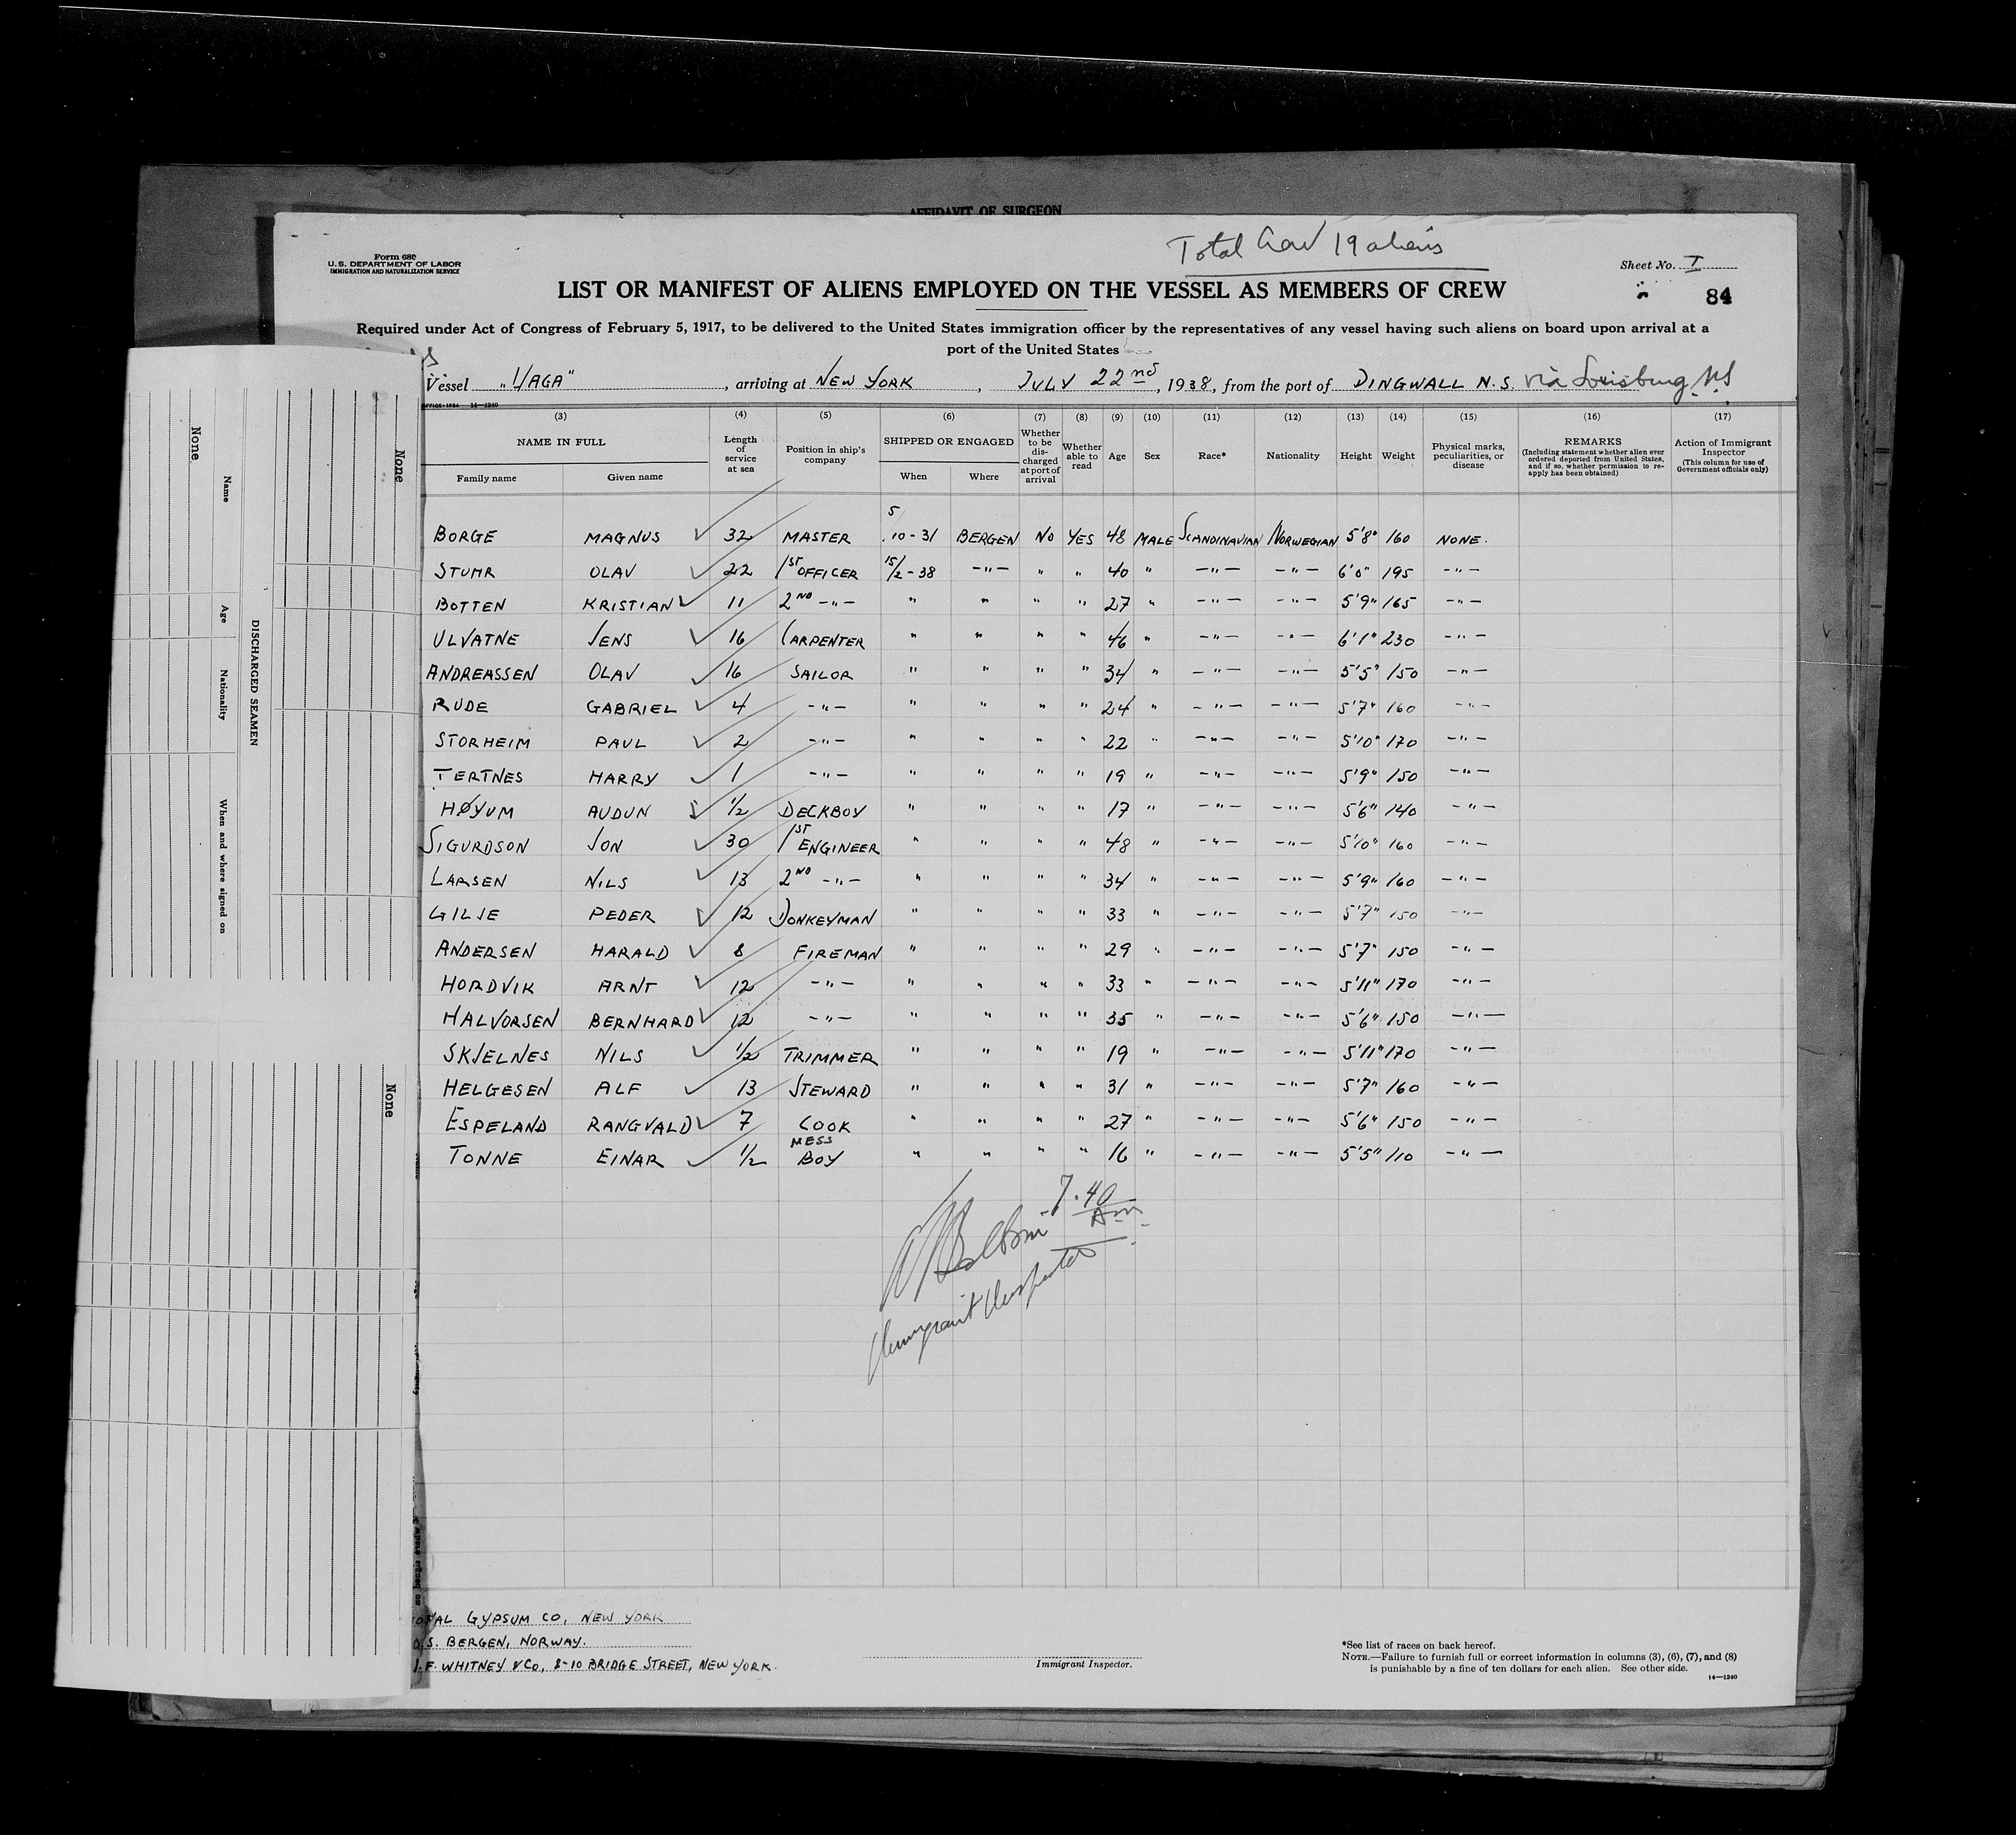 AFFIDAVIT OF SURGEON
Total Crew 19 aliens
Form 680
U.S. DEPARTMENT OF LABOR
IMMIGRATION AND NATURALIZATION SERVICE
Sheet No. I
84
LIST OR MANIFEST OF ALIENS EMPLOYED ON THE VESSEL AS MEMBERS OF CREW
Required under Act of Congress of February 5, 1917, to be delivered to the United States immigration officer by the representatives of any vessel having such aliens on board upon arrival at a
port of the United States
Vessel "HAGA", arriving at NEW YORK, JULY 22nd, 1938, from the port of DINGWALL N.S. via Louisburg NS
14—1240
(3) (4) (5) (6) (7) (8) (9) (10) (11) (12) (13) (14) (15) (16) (17)
NAME IN FULL
Family name Given name
Length of service at sea
Position in ship's company
SHIPPED OR ENGAGED
When Where
Whether to be discharged at port of arrival
Whether able to read
Age
Sex
Race*
Nationality
Height
Weight
Physical marks, peculiarities, or disease
REMARKS
(Including statement whether alien ever ordered deported from United States, and if so, whether permission to reapply has been obtained)
Action of Immigrant Inspector
(This column for use of Government officials only)
BORGE MAGNUS ✓ 32 MASTER 5/10-31 BERGEN NO YES 48 MALE SCANDINAVIAN NORWEGIAN 5'8" 160 NONE.
STUHR OLAV ✓ 22 1ST OFFICER 15/2-38 -"- " " 40 " -"- -"- 6'0" 195 -"-
BOTTEN KRISTIAN ✓ 11 2ND -"- " " " " 27 " -"- -"- 5'9" 165 -"-
ULVATNE JENS ✓ 16 CARPENTER " " " " 46 " -"- -"- 6'1" 230 -"-
ANDREASSEN OLAV ✓ 16 SAILOR " " " " 34 " -"- -"- 5'5" 150 -"-
RUDE GABRIEL ✓ 4 -"- " " " " 24 " -"- -"- 5'7" 160 -"-
STORHEIM PAUL ✓ 2 -"- " " " " 22 " -"- -"- 5'10" 170 -"-
TERTNES HARRY ✓ 1 -"- " " " " 19 " -"- -"- 5'9" 150 -"-
HØYUM AUDUN ✓ 1/2 DECKBOY " " " " 17 " -"- -"- 5'6" 140 -"-
SIGURDSON JON ✓ 30 1ST ENGINEER " " " " 48 " -"- -"- 5'10" 160 -"-
LARSEN NILS ✓ 13 2ND -"- " " " " 34 " -"- -"- 5'9" 160 -"-
GILJE PEDER ✓ 12 DONKEYMAN " " " " 33 " -"- -"- 5'7" 150 -"-
ANDERSEN HARALD ✓ 8 FIREMAN " " " " 29 " -"- -"- 5'7" 150 -"-
HORDVIK ARNT ✓ 12 -"- " " " " 33 " -"- -"- 5'11" 170 -"-
HALVORSEN BERNHARD ✓ 12 -"- " " " " 35 " -"- -"- 5'6" 150 -"-
SKJELNES NILS ✓ 1/2 TRIMMER " " " " 19 " -"- -"- 5'11" 170 -"-
HELGESEN ALF ✓ 13 STEWARD " " " " 31 " -"- -"- 5'7" 160 -"-
ESPELAND RANGVALD ✓ 7 COOK " " " " 27 " -"- -"- 5'6" 150 -"-
TONNE EINAR ✓ 1/2 MESS BOY " " " " 16 " -"- -"- 5'5" 110 -"-
7.40 Am
Immigrant Inspector
GYPSUM CO, NEW YORK
BERGEN, NORWAY.
J.F. WHITNEY & CO, 8-10 BRIDGE STREET, NEW YORK.
Immigrant Inspector.
*See list of races on back hereof.
NOTE.—Failure to furnish full or correct information in columns (3), (6), (7), and (8)
is punishable by a fine of ten dollars for each alien. See other side.
14—1240
None
None
None
DISCHARGED SEAMEN
Name
Age
Nationality
When and where signed on